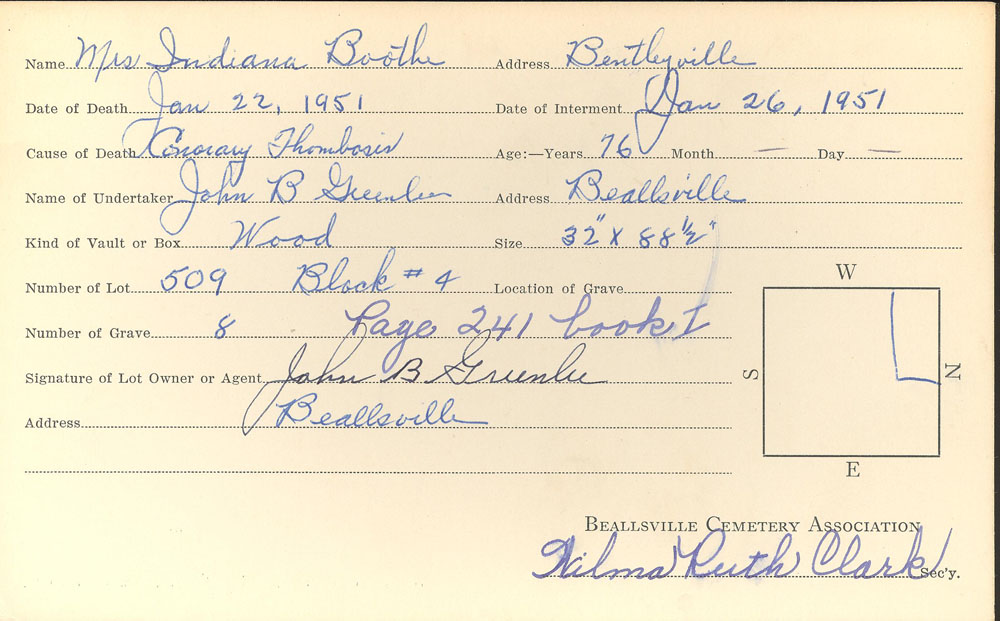 Name Mrs Indiana Boothe Address Bentleyville
Date of Death Jan 22, 1951 Date of Interment Jan 26, 1951
Cause of Death Conorary Thombosis Age:—Years 76 Month — Day —
Name of Undertaker John B Greenlee Address Beallsville
Kind of Vault or Box Wood Size 32" X 88 1/2"
Number of Lot 509 Block # 4 Location of Grave
W
Number of Grave 8 Page 241 book I
Signature of Lot Owner or Agent John B Greenlee
S N
Address Beallsville
E
BEALLSVILLE CEMETERY ASSOCIATION
Wilma Ruth Clark Sec'y.